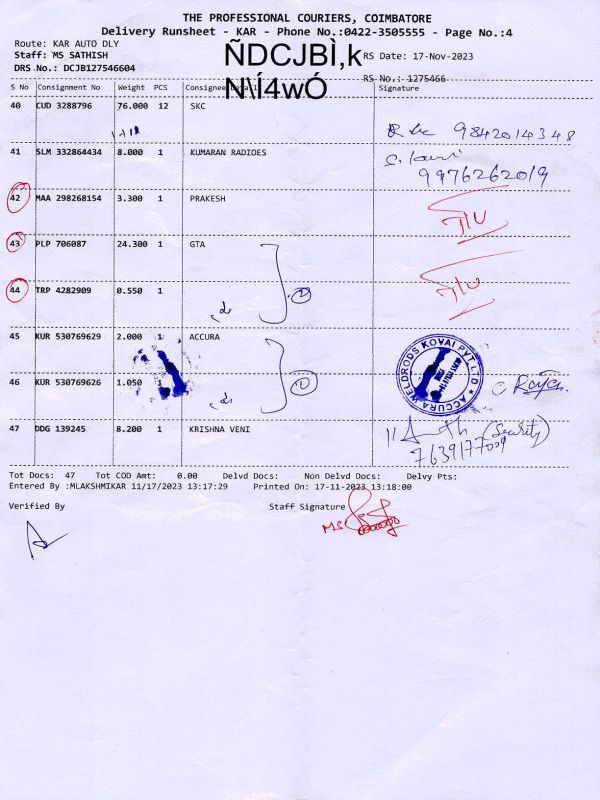 THE PROFESSIONAL COURIERS, COIMBATORE
Delivery Runsheet - KAR - Phone No.:0422-3505555 - Page No.:4
Route: KAR AUTO DLY
Staff: MS SATHISH
RS Date: 17-Nov-2023
DRS No.: DCJB127546604
ÑDCJBÌ,k
N\Í4wÓ
RS No.: 1275466
S No Consignment No Weight PCS Consignee Detail Signature
40 CUD 3288796 76.000 12 SKC
9842014348
41 SLM 332864434 8.000 1 KUMARAN RADIOES
9976262019
42 MAA 298268154 3.300 1 PRAKESH
43 PLP 706087 24.300 1 GTA
44 TRP 4282909 0.550 1
45 KUR 530769629 2.000 1 ACCURA
46 KUR 530769626 1.050 1
ACCURA WELDRODS KOVAI PVT LTD
47 DDG 139245 8.200 1 KRISHNA VENI
(Security)
Tot Docs: 47 Tot COD Amt: 0.00 Delvd Docs: Non Delvd Docs: Delvy Pts:
Entered By :MLAKSHMIKAR 11/17/2023 13:17:29 Printed On: 17-11-2023 13:18:00
Verified By Staff Signature
MS